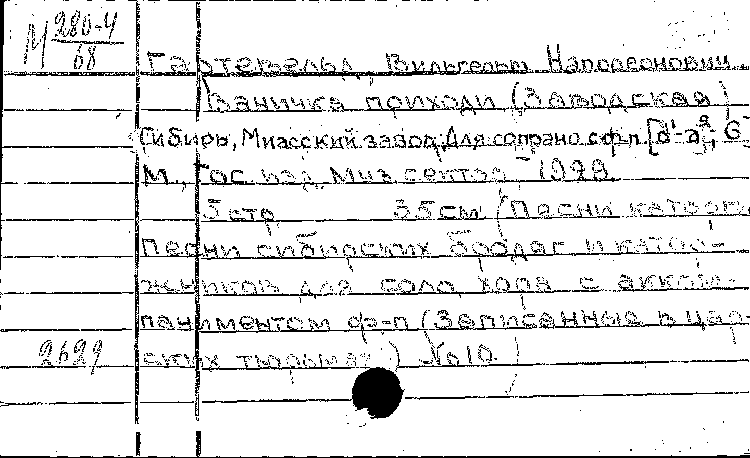 М 280-4
68
Гартевельд, Вильгельм Наполеонович.
Ваничка приходи (Заводская)
Сибирь, Миасский завод. Для сопрано с ф.п. [d¹-a²; G-
М., Гос. изд. Муз. сектор, 1928.
5 стр. 35 см. (Песни каторги
Песни сибирских бродяг и катор-
жников для соло, хора с акком-
паниментом ф-п (Записанные в цар-
2629
ских тюрьмах) No 10.)